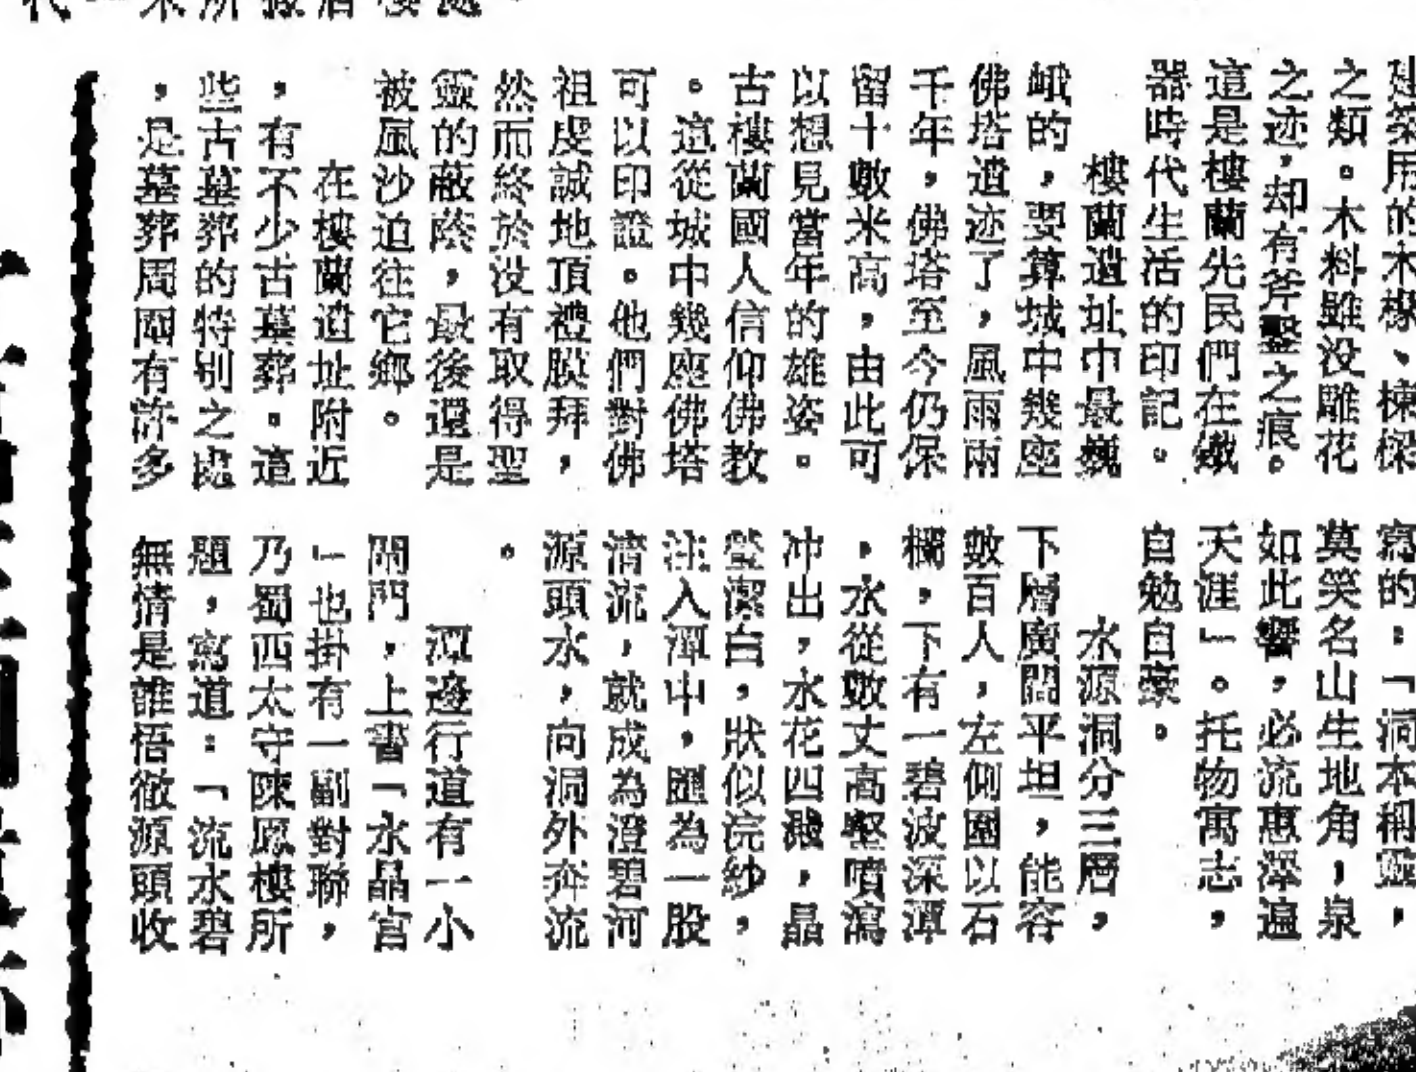 建築用的木椽、棟樑
之類。木料雖没雕花
之迹，却有斧鑿之痕。
這是樓蘭先民們在鐵
器時代生活的印記。
樓蘭遺址中最巍
峨的，要算城中幾座
佛塔遺迹了，風雨兩
千年，佛塔至今仍保
留十數米高，由此可
以想見當年的雄姿。
古樓蘭國人信仰佛教
。這從城中幾座佛塔
可以印證。他們對佛
祖虔誠地頂禮膜拜，
然而終於没有取得聖
靈的蔽蔭，最後還是
被風沙迫往它鄉。
在樓蘭遺址附近
，有不少古墓葬。這
些古墓葬的特别之處
，是墓葬周圍有許多
寫的：「洞本稱靈，
莫笑名山生地角，泉
如此響，必流惠澤遍
天涯」。托物寓志，
自勉自豪。
水源洞分三層，
下層廣闊平坦，能容
數百人，左側圍以石
欄，下有一碧波深潭
，水從數丈高壑噴瀉
冲出，水花四濺，晶
瑩潔白，狀似浣紗，
注入潭中，匯為一股
清流，就成為澄碧河
源頭水，向洞外奔流
。
潭邊行道有一小
閘門，上書「水晶宮
」也掛有一副對聯，
乃蜀西太守陳鳳樓所
題，寫道：「流水碧
無情是誰悟徹源頭收